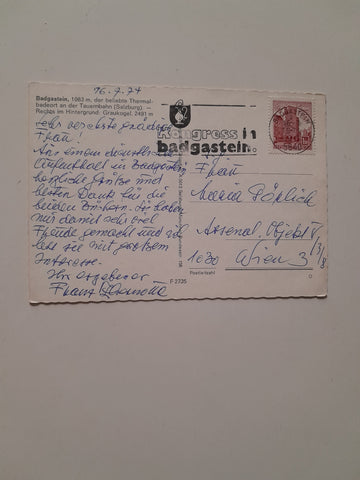 16.7.74
Badgastein, 1083 m, der beliebte Thermal-
badeort an der Tauernbahn (Salzburg). —
Rechts im Hintergrund: Graukogel, 2491 m
Sehr verehrte gnädige
Frau!
An einem
Aufenthalt in Badgastein
herzliche Grüße und
besten Dank für die
beiden Sie haben
mir damit sehr viel
Freude gemacht und ich
lese sie mit großem
Interesse.
Ihr ergebener
Franz
Kongress in
badgastein.
5640
Frau
Maria
Arsenal, Objekt V,
3/8
1030 Wien 3
Postleitzahl
F 2725